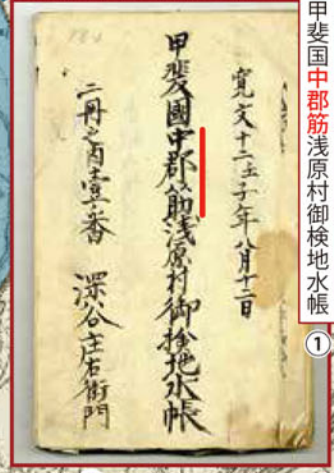 甲斐国中郡筋浅原村御検地水帳
①
寛文十二壬子年八月十二日
甲斐國中郡筋浅原村御検地水帳
二冊之内壹番 深谷庄右衛門